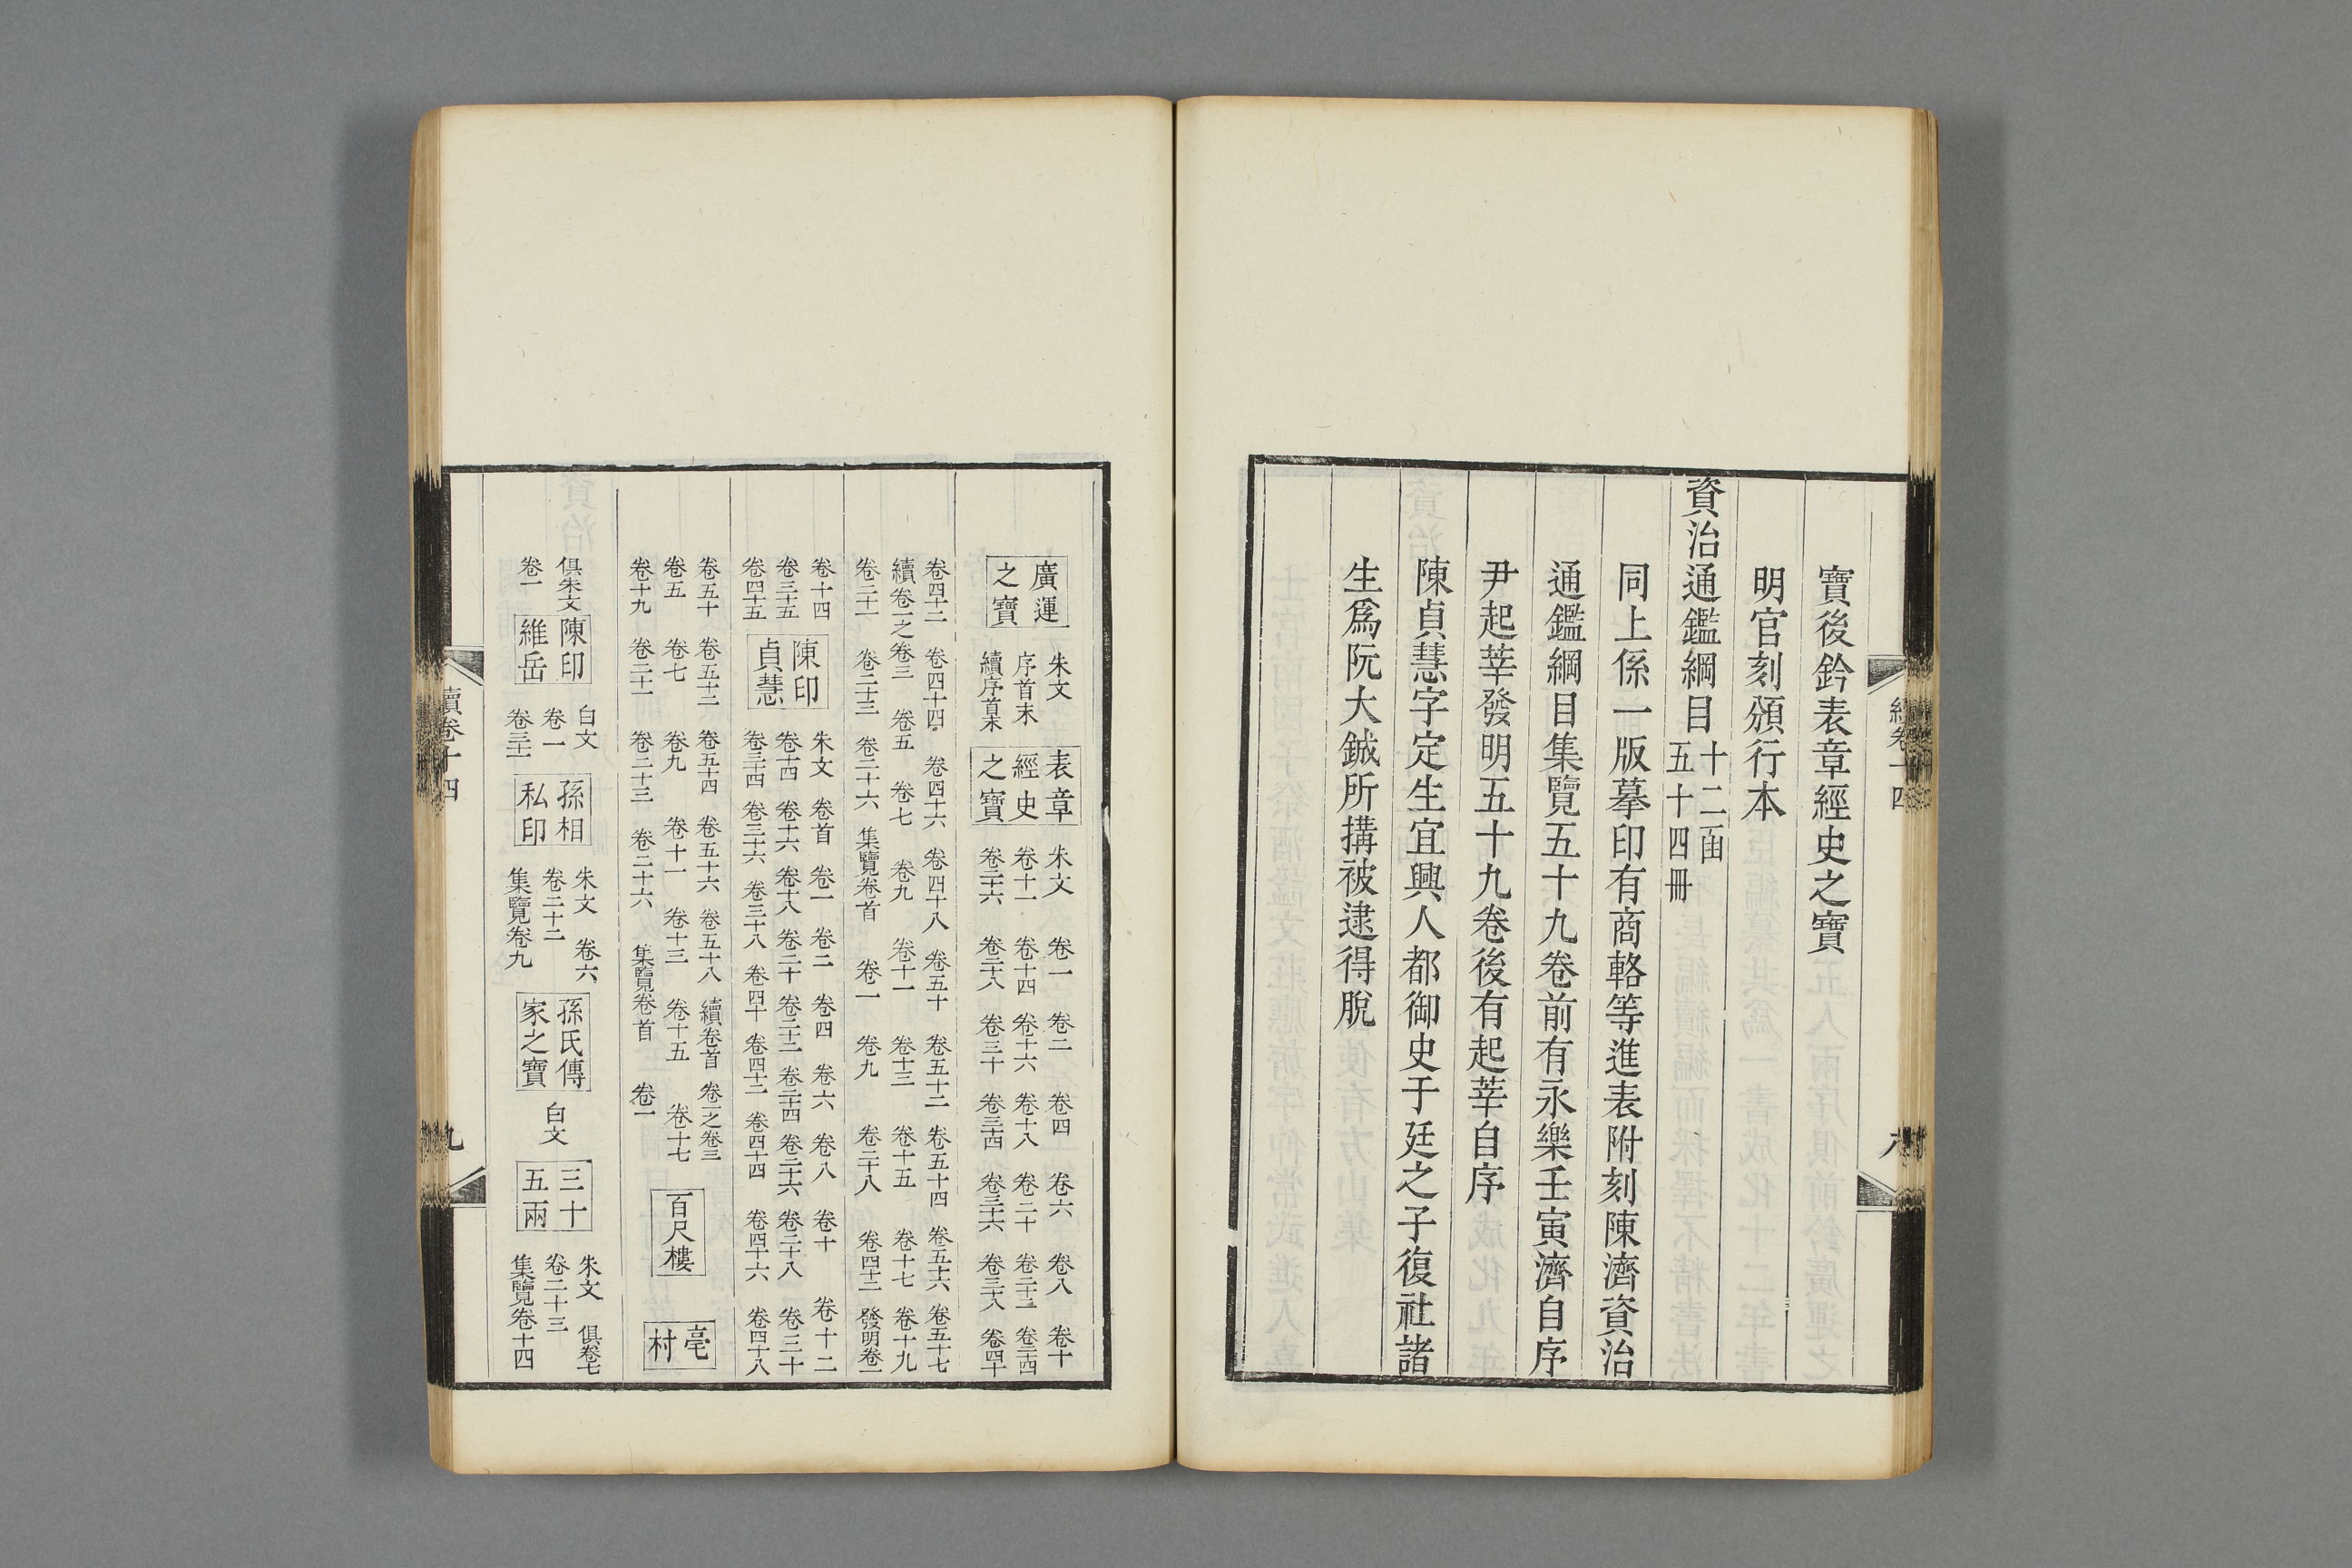 寶後鈐表章經史之寶
明官刻頒行本
資治通鑑綱目十二函五十四冊
同上係一版摹印有商輅等進表附刻陳濟資治
通鑑綱目集覽五十九卷前有永樂壬寅濟自序
尹起莘發明五十九卷後有起莘自序
陳貞慧字定生宜興人都御史于廷之子復社諸
生為阮大鋮所搆被逮得脫
廣運
之寶
朱文
序首末
續序首末
表章
經史
之寶
朱文 卷一 卷二 卷四 卷六 卷八 卷十
卷十一 卷十四 卷十六 卷十八 卷二十 卷二十二 卷二十四
卷二十六 卷二十八 卷三十 卷三十四 卷三十六 卷三十八 卷四十
卷四十二 卷四十四 卷四十六 卷四十八 卷五十 卷五十二 卷五十四 卷五十六 卷五十七
續卷一之卷三 卷五 卷七 卷九 卷十一 卷十三 卷十五 卷十七 卷十九
卷二十一 卷二十三 卷二十六 集覽卷首 卷一 卷九 卷二十八 卷四十二 發明卷一
卷十四
卷三十五
卷四十五
陳印
貞慧
朱文 卷首 卷一 卷二 卷四 卷六 卷八 卷十 卷十二
卷十四 卷十六 卷十八 卷二十 卷二十二 卷二十四 卷二十六 卷二十八 卷三十
卷三十四 卷三十六 卷三十八 卷四十 卷四十二 卷四十四 卷四十六 卷四十八
卷五十 卷五十二 卷五十四 卷五十六 卷五十八 續卷首 卷一之卷三
卷五 卷七 卷九 卷十一 卷十三 卷十五 卷十七
卷十九 卷二十一 卷二十三 卷二十六 集覽卷首 卷一
百尺樓
亳
村
俱朱文
卷一
陳印
維岳
白文
卷一
卷三十一
孫相
私印
朱文 卷六
卷二十二
集覽卷九
孫氏傳
家之寶
白文
三十
五兩
朱文 俱卷七
卷二十三
集覽卷十四
續卷十四
九